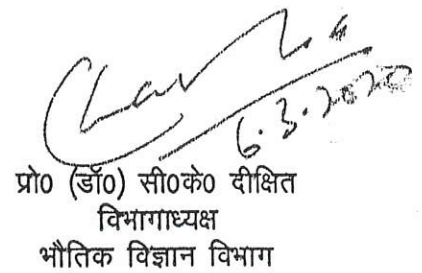 6.3.2020
प्रो0 (डॉ0) सी0के0 दीक्षित
विभागाध्यक्ष
भौतिक विज्ञान विभाग